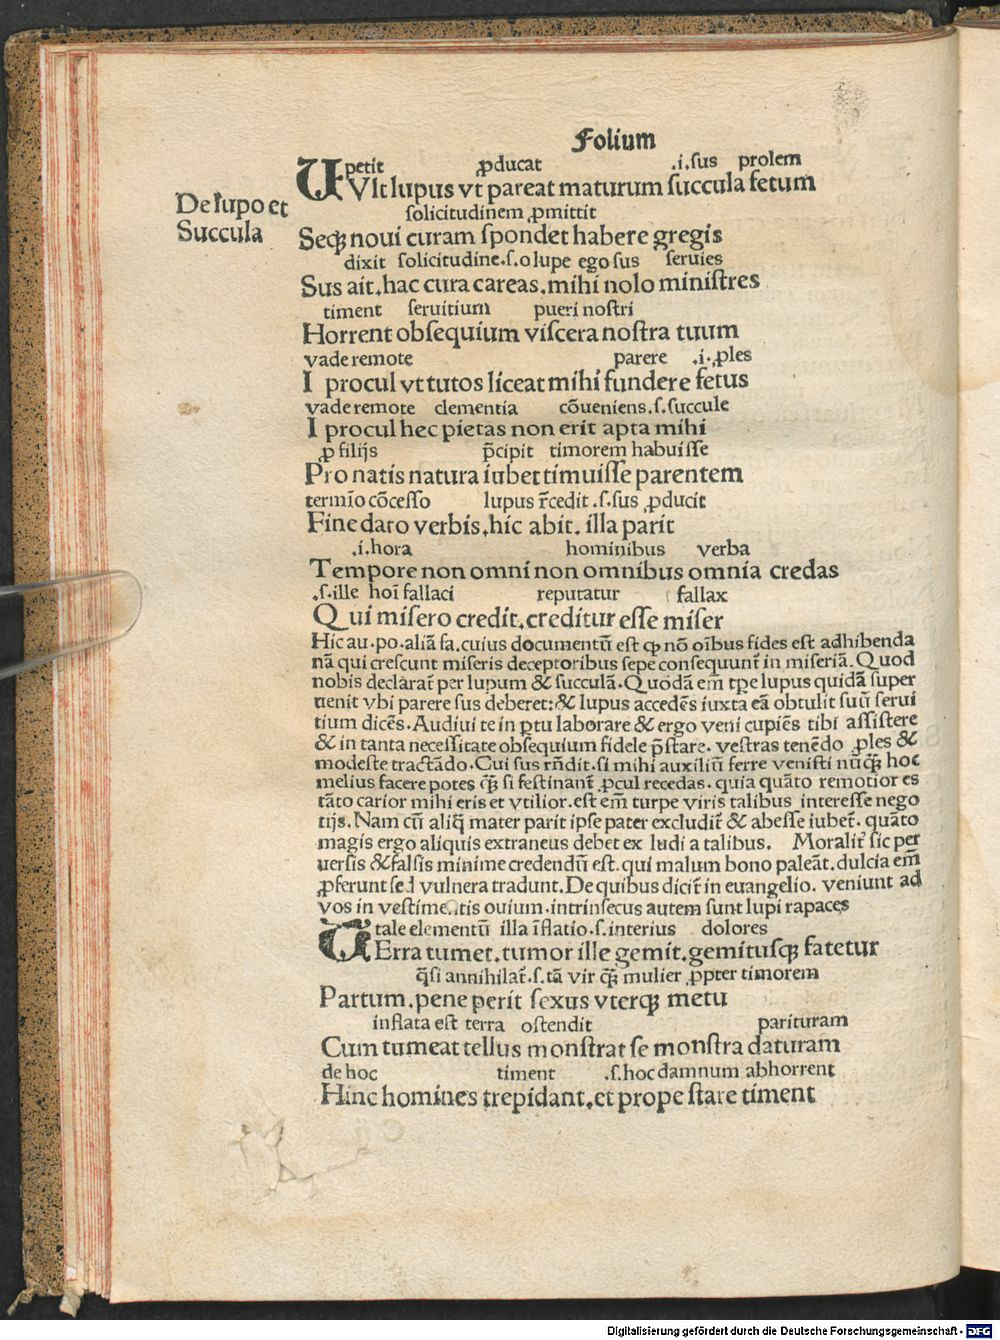 Folium
petit ꝓducat .i.sus prolem
De lupo et Succula
VVlt lupus vt pareat maturum succula fetum
solicitudinem ꝓmittit
Seqꝫ noui curam spondet habere gregis
dixit solicitudine.s.o lupe ego sus seruies
Sus ait.hac cura careas.mihi nolo ministres
timent seruitium pueri nostri
Horrent obsequium viscera nostra tuum
vade remote parere .i.ꝓles
I procul vt tutos liceat mihi fundere fetus
vade remote clementia cōueniens.s.succule
I procul hec pietas non erit apta mihi
ꝓ filijs p̄cipit timorem habuisse
Pro natis natura iubet timuisse parentem
termīo cōcesso lupus r̄cedit .s.sus ꝓducit
Fine dato verbis.hic abit. illa parit
.i.hora hominibus verba
Tempore non omni non omnibus omnia credas
.s.ille hoī fallaci reputatur fallax
Qui misero credit.creditur esse miser
Hic au.po.aliā fa.cuius documentū est ꝙ nō oībus fides est adhibenda
nā qui crescunt miseris deceptoribus sepe consequunt̄ in miseriā.Quod
nobis declarat̄ per lupum & succulā.Quodā em̄ tp̄e lupus quidā super
uenit vbi parere sus deberet:& lupus accedēs iuxta eā obtulit suū serui
tium dicēs.Audiui te in ꝑtu laborare & ergo veni cupiēs tibi assistere
& in tanta necessitate obsequium fidele p̄stare. vestras tenēdo ꝓles &
modeste tractādo.Cui sus rn̄dit.si mihi auxiliū ferre venisti nūq̄ꝫ hoc
melius facere potes q̄ꝫ si festinant̄ ꝓcul recedas. quia quāto remotior es
tāto carior mihi eris et vtilior.est em̄ turpe viris talibus interesse nego
tijs.Nam cū aliq̄ mater parit ipse pater excludit̄ & abesse iubet̄. quāto
magis ergo aliquis extraneus debet ex ludi a talibus. Moralit̄ sic per
uersis &falsis minime credendū est.qui malum bono paleāt.dulcia em̄
ꝓferunt sed vulnera tradunt.De quibus dicit̄ in euangelio. veniunt ad
vos in vestimentis ouium.intrinsecus autem sunt lupi rapaces
tale elementū illa īflatio.s.interius dolores
VErra tumet.tumor ille gemit.gemitusqꝫ fatetur
q̄si annihilat̄.s.tā vir q̄ꝫ mulier ꝓpter timorem
Partum.pene perit sexus vterqꝫ metu
inflata est terra ostendit parituram
Cum tumeat tellus monstrat se monstra daturam
de hoc timent .s.hoc damnum abhorrent
Hinc homines trepidant.et prope stare timent
Digitalisierung gefördert durch die Deutsche Forschungsgemeinschaft - DFG